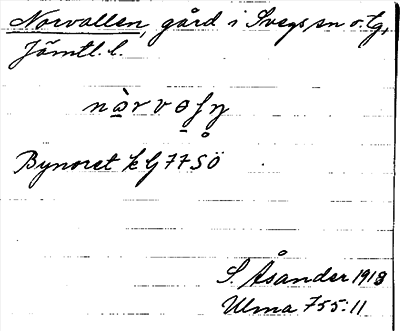 Norvallen, gård i Svegs sn o. tg,
Jämtl. l.
Bynoret k G 77 SÖ
S. Åsander 1918
Ulma 755:11